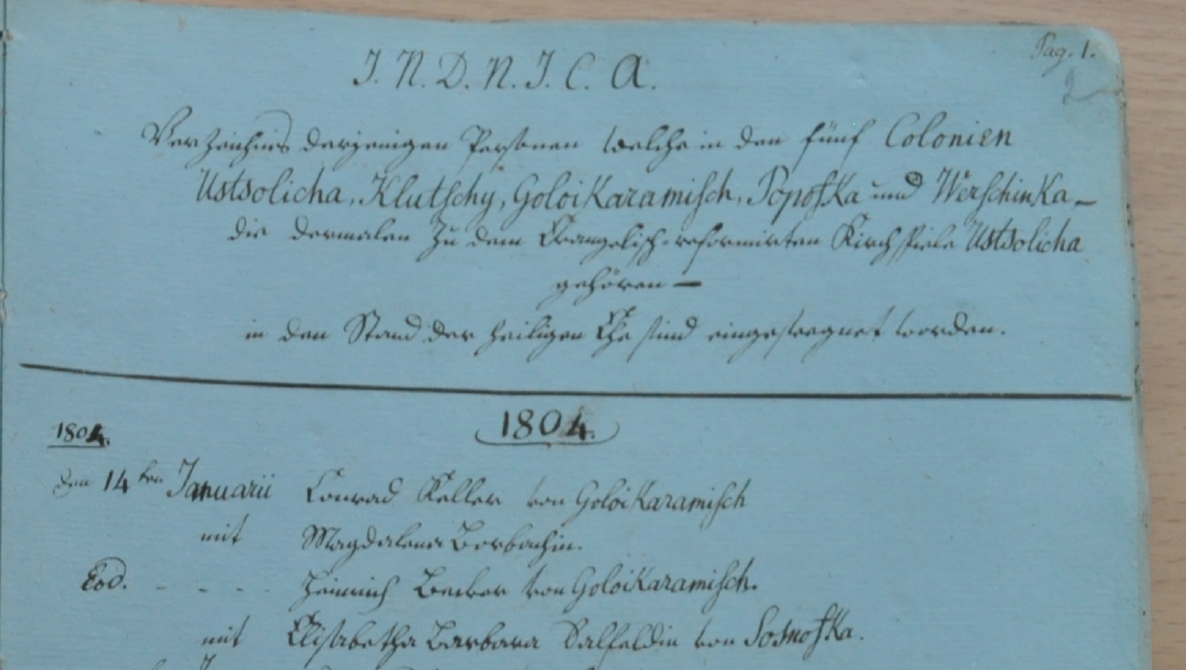 Pag. 1.
2
J. N. D. N. J. C. A.
Verzeichnis derjenigen Personen welche in den fünf Colonien
Ustsolicha, Klutschy, GoloiKaramisch, PopofKa und WerschinKa –
die dermalen zu dem Evangelisch-reformirten Kirchspiele Ustsolicha
gehören –
in den Stand der heiligen Ehe sind eingeseegnet worden.
1804.
1804.
den 14ten Januarii Conrad Keller von GoloiKaramisch
mit Magdalena Borbachin.
Eod. - - - - Heinrich Becker von GoloiKaramisch.
mit Elisabetha Barbara Salfeldin von SosnofKa.